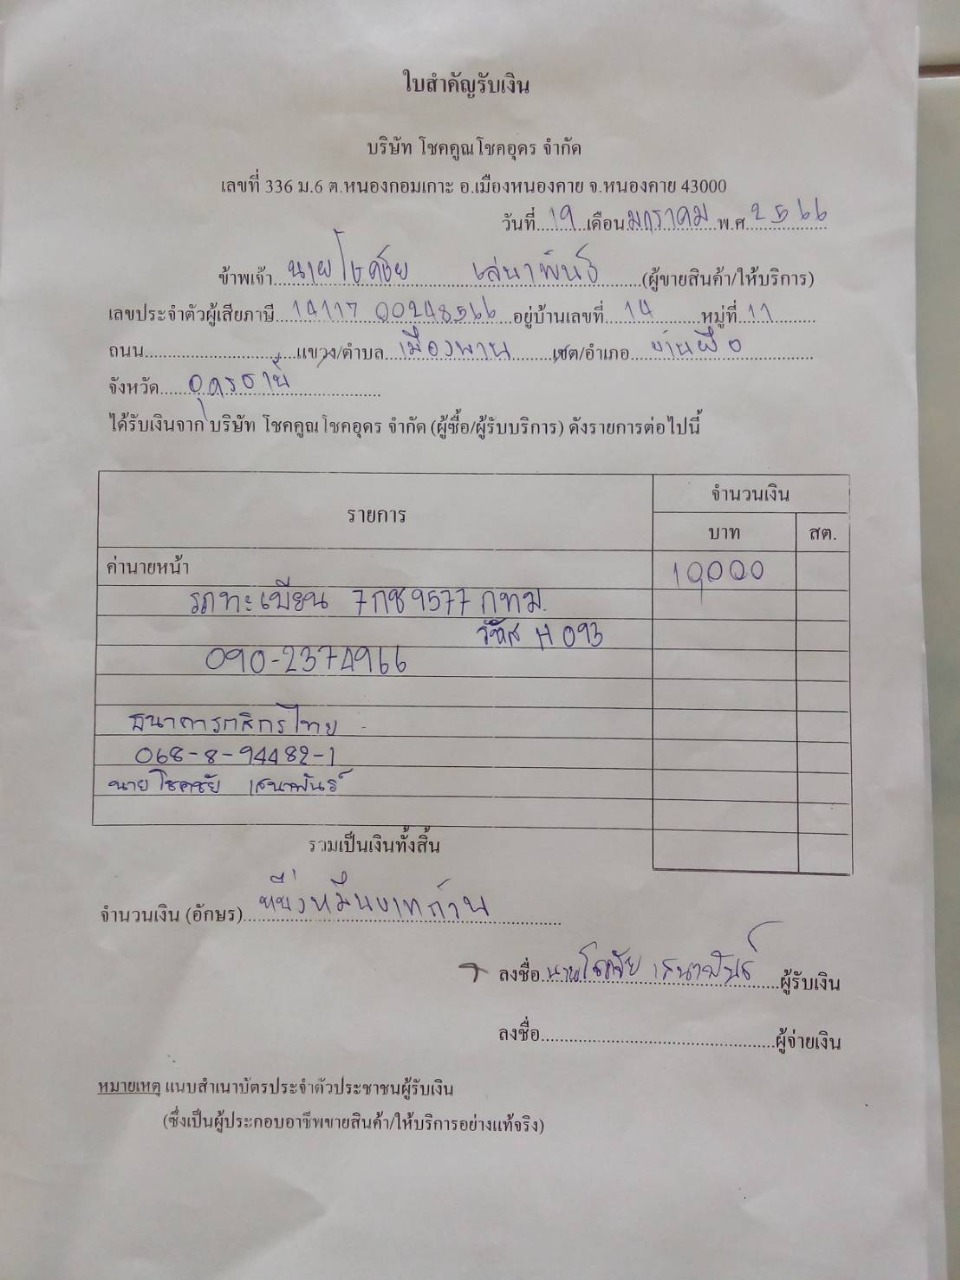 ใบสำคัญรับเงิน
บริษัท โชคคูณโชคอุดร จำกัด
เลขที่ 336 ม.6 ต.หนองกอมเกาะ อ.เมืองหนองคาย จ.หนองคาย 43000
วันที่ 19 เดือน มกราคม พ.ศ 2566
ข้าพเจ้า นายโชคชัย เสนาพันธ์ (ผู้ขายสินค้า/ให้บริการ)
เลขประจำตัวผู้เสียภาษี 14117 00248566 อยู่บ้านเลขที่ 14 หมู่ที่ 11
ถนน แขวง/ตำบล เมืองพาน เขต/อำเภอ บ้านผือ
จังหวัด อุดรธานี
ได้รับเงินจาก บริษัท โชคคูณโชคอุดร จำกัด (ผู้ซื้อ/ผู้รับบริการ) ดังรายการต่อไปนี้
รายการ จำนวนเงิน
บาท สต.
ค่านายหน้า 10000
รถทะเบียน 7กช9577 กทม.
รหัส H 093
090-2374966
ธนาคารกสิกรไทย
068-8-94482-1
นายโชคชัย เสนาพันธ์
รวมเป็นเงินทั้งสิ้น
จำนวนเงิน (อักษร) หนึ่งหมื่นบาทถ้วน
ลงชื่อ นายโชคชัย เสนาพันธ์ ผู้รับเงิน
ลงชื่อ ผู้จ่ายเงิน
หมายเหตุ แนบสำเนาบัตรประจำตัวประชาชนผู้รับเงิน
(ซึ่งเป็นผู้ประกอบอาชีพขายสินค้า/ให้บริการอย่างแท้จริง)